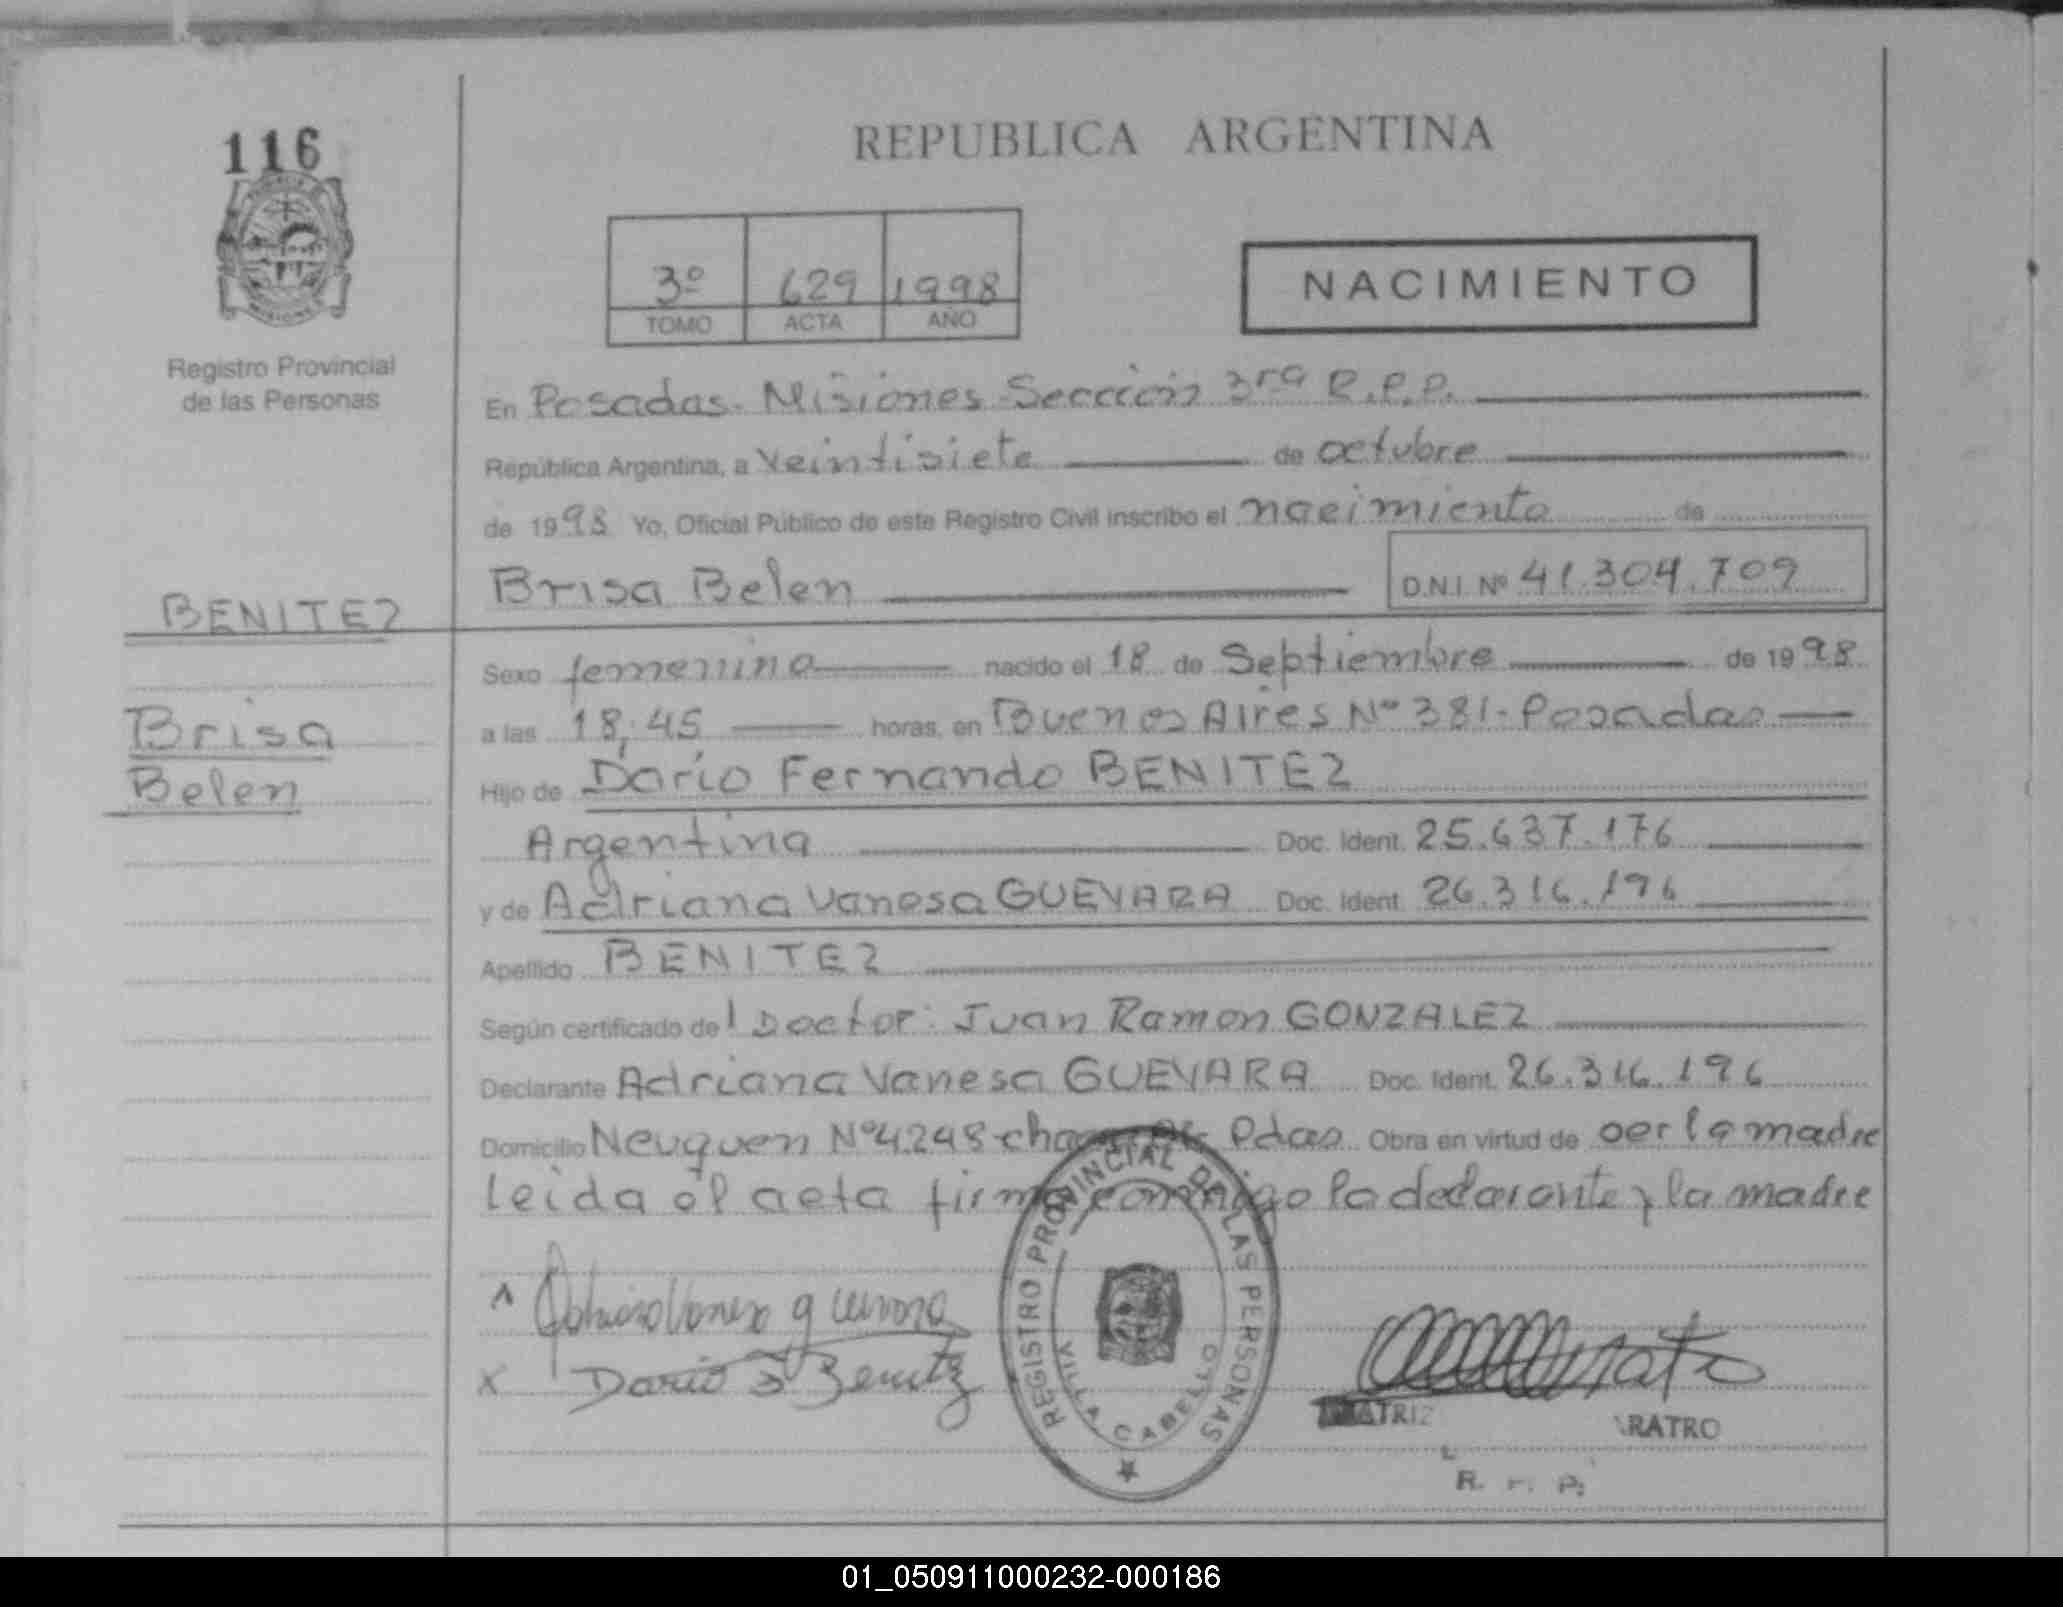 116
REPUBLICA ARGENTINA
3º 629 1998
TOMO ACTA AÑO
NACIMIENTO
Registro Provincial
de las Personas
En Posadas. Misiones-Sección 3ra R.P.P.
República Argentina, a Veintisiete de octubre
de 1998 Yo, Oficial Público de este Registro Civil inscribo el nacimiento de
Brisa Belen D.N.I. Nº 41.304.709
BENITEZ
Sexo femenino nacido el 18 de Septiembre de 1998
Brisa
a las 18,45 horas, en Buenos Aires Nº 381-Posadas
Belen
Hijo de Dario Fernando BENITEZ
Argentina Doc. Ident. 25.637.176
y de Adriana Vanesa GUEVARA Doc. Ident. 26.316.196
Apellido BENITEZ
Según certificado del Doctor: Juan Ramon GONZALEZ
Declarante Adriana Vanesa GUEVARA Doc. Ident. 26.316.196
Domicilio Neuquen Nº4248 Pdas Obra en virtud de ser la madre
leida el acta firma conmigo la declarante y la madre
x Dario F Benitez
REGISTRO PROVINCIAL DE LAS PERSONAS
VILLA CABELLO
R. P. P.
01_050911000232-000186